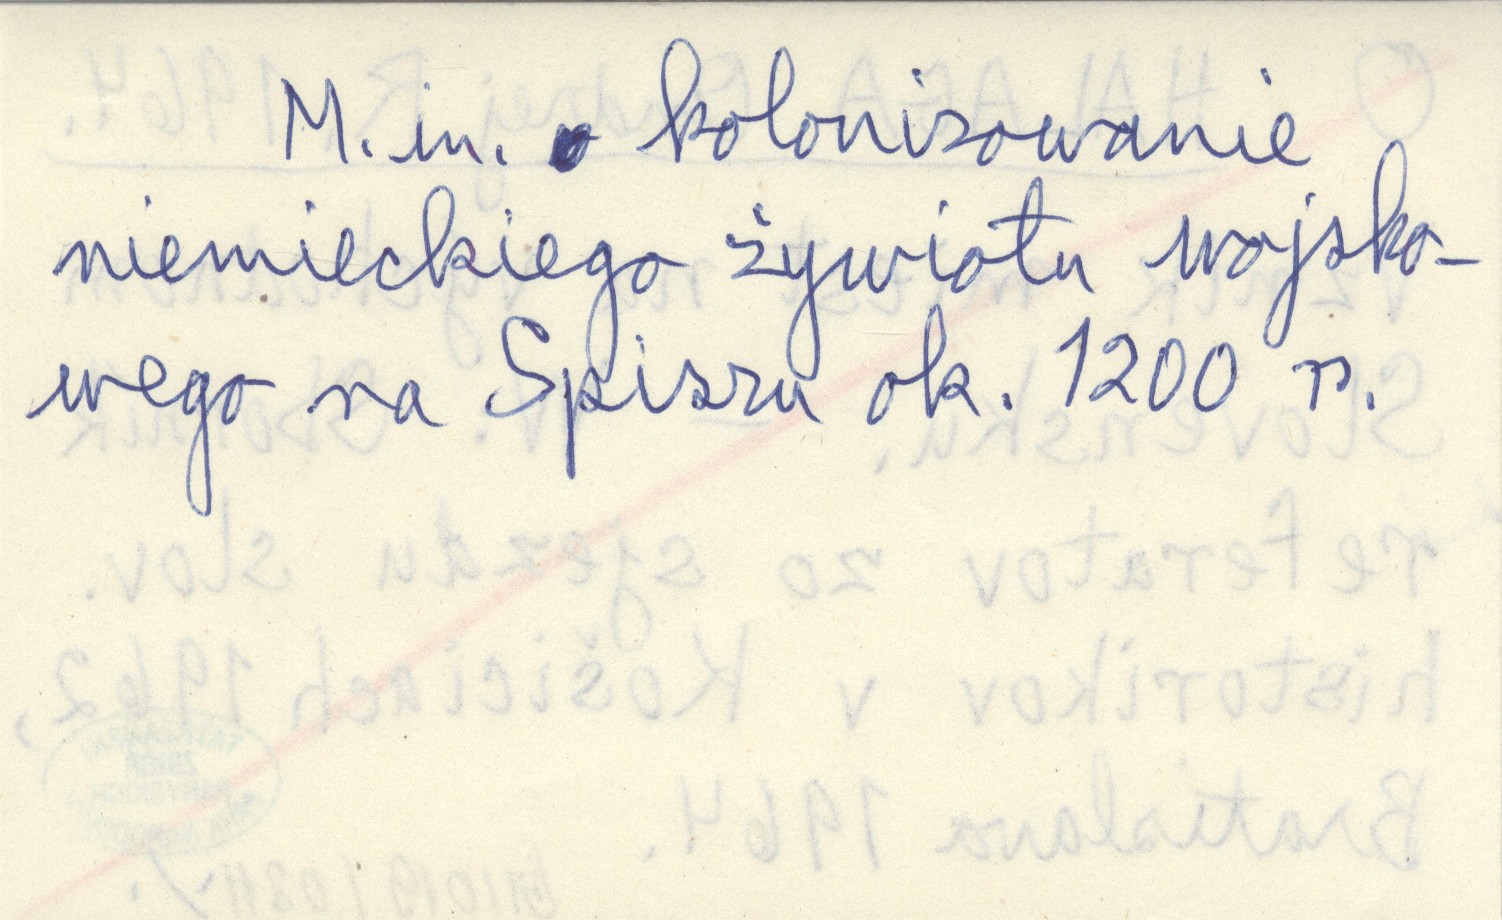 M. in. o kolonizowanie
niemieckiego żywiołu wojsko-
wego na Spiszu ok. 1200 r.